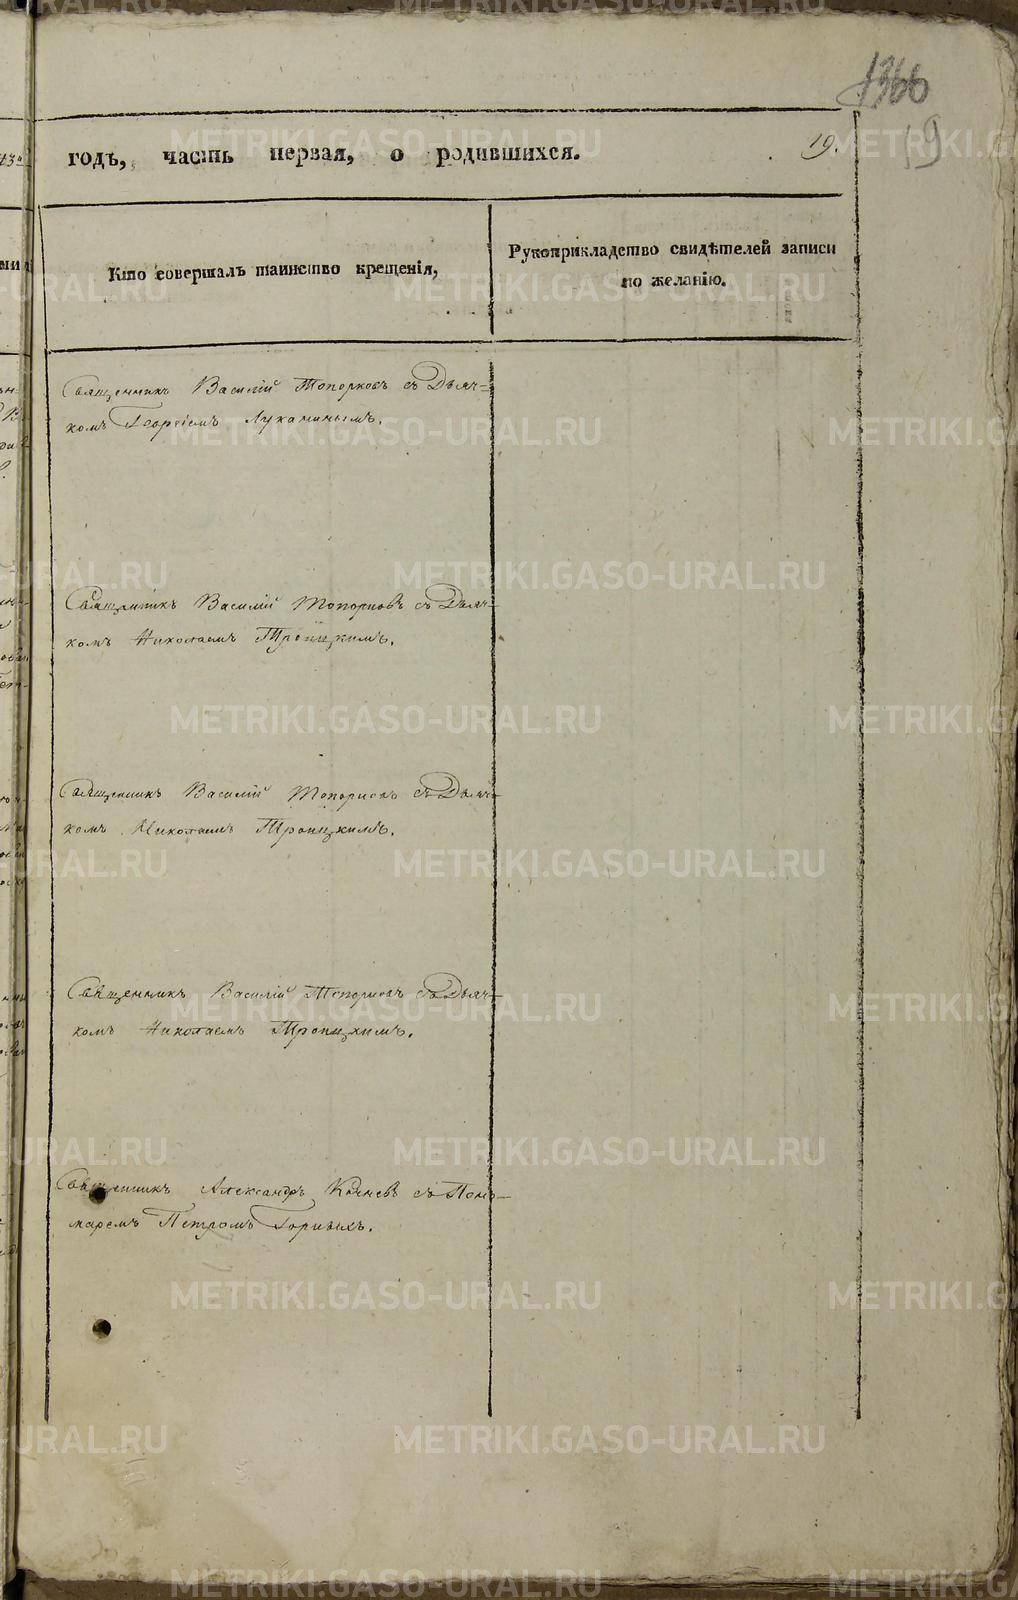 1366
19.
19
годъ, часть первая, о родившихся.
Кто совершалъ таинство крещенія,
Рукоприкладство свидѣтелей записи
по желанію.
Священникъ Василій Топорковъ съ Дьяч=
комъ Георгіемъ Луканинымъ.
Священникъ Василій Топорковъ съ Дьяч-
комъ Николаемъ Троицкимъ.
Священникъ Василій Топорковъ съ Дьяч-
комъ Николаемъ Троицкимъ.
Священникъ Василій Топорковъ съ Дьяч-
комъ Николаемъ Троицкимъ.
Священникъ Александръ съ Поно-
маремъ Петромъ
METRIKI.GASO-URAL.RU